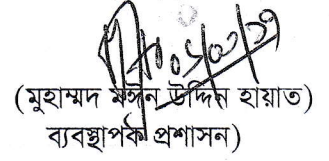 (মুহাম্মদ মঈন উদ্দিন হায়াত)
ব্যবস্থাপক প্রশাসন)